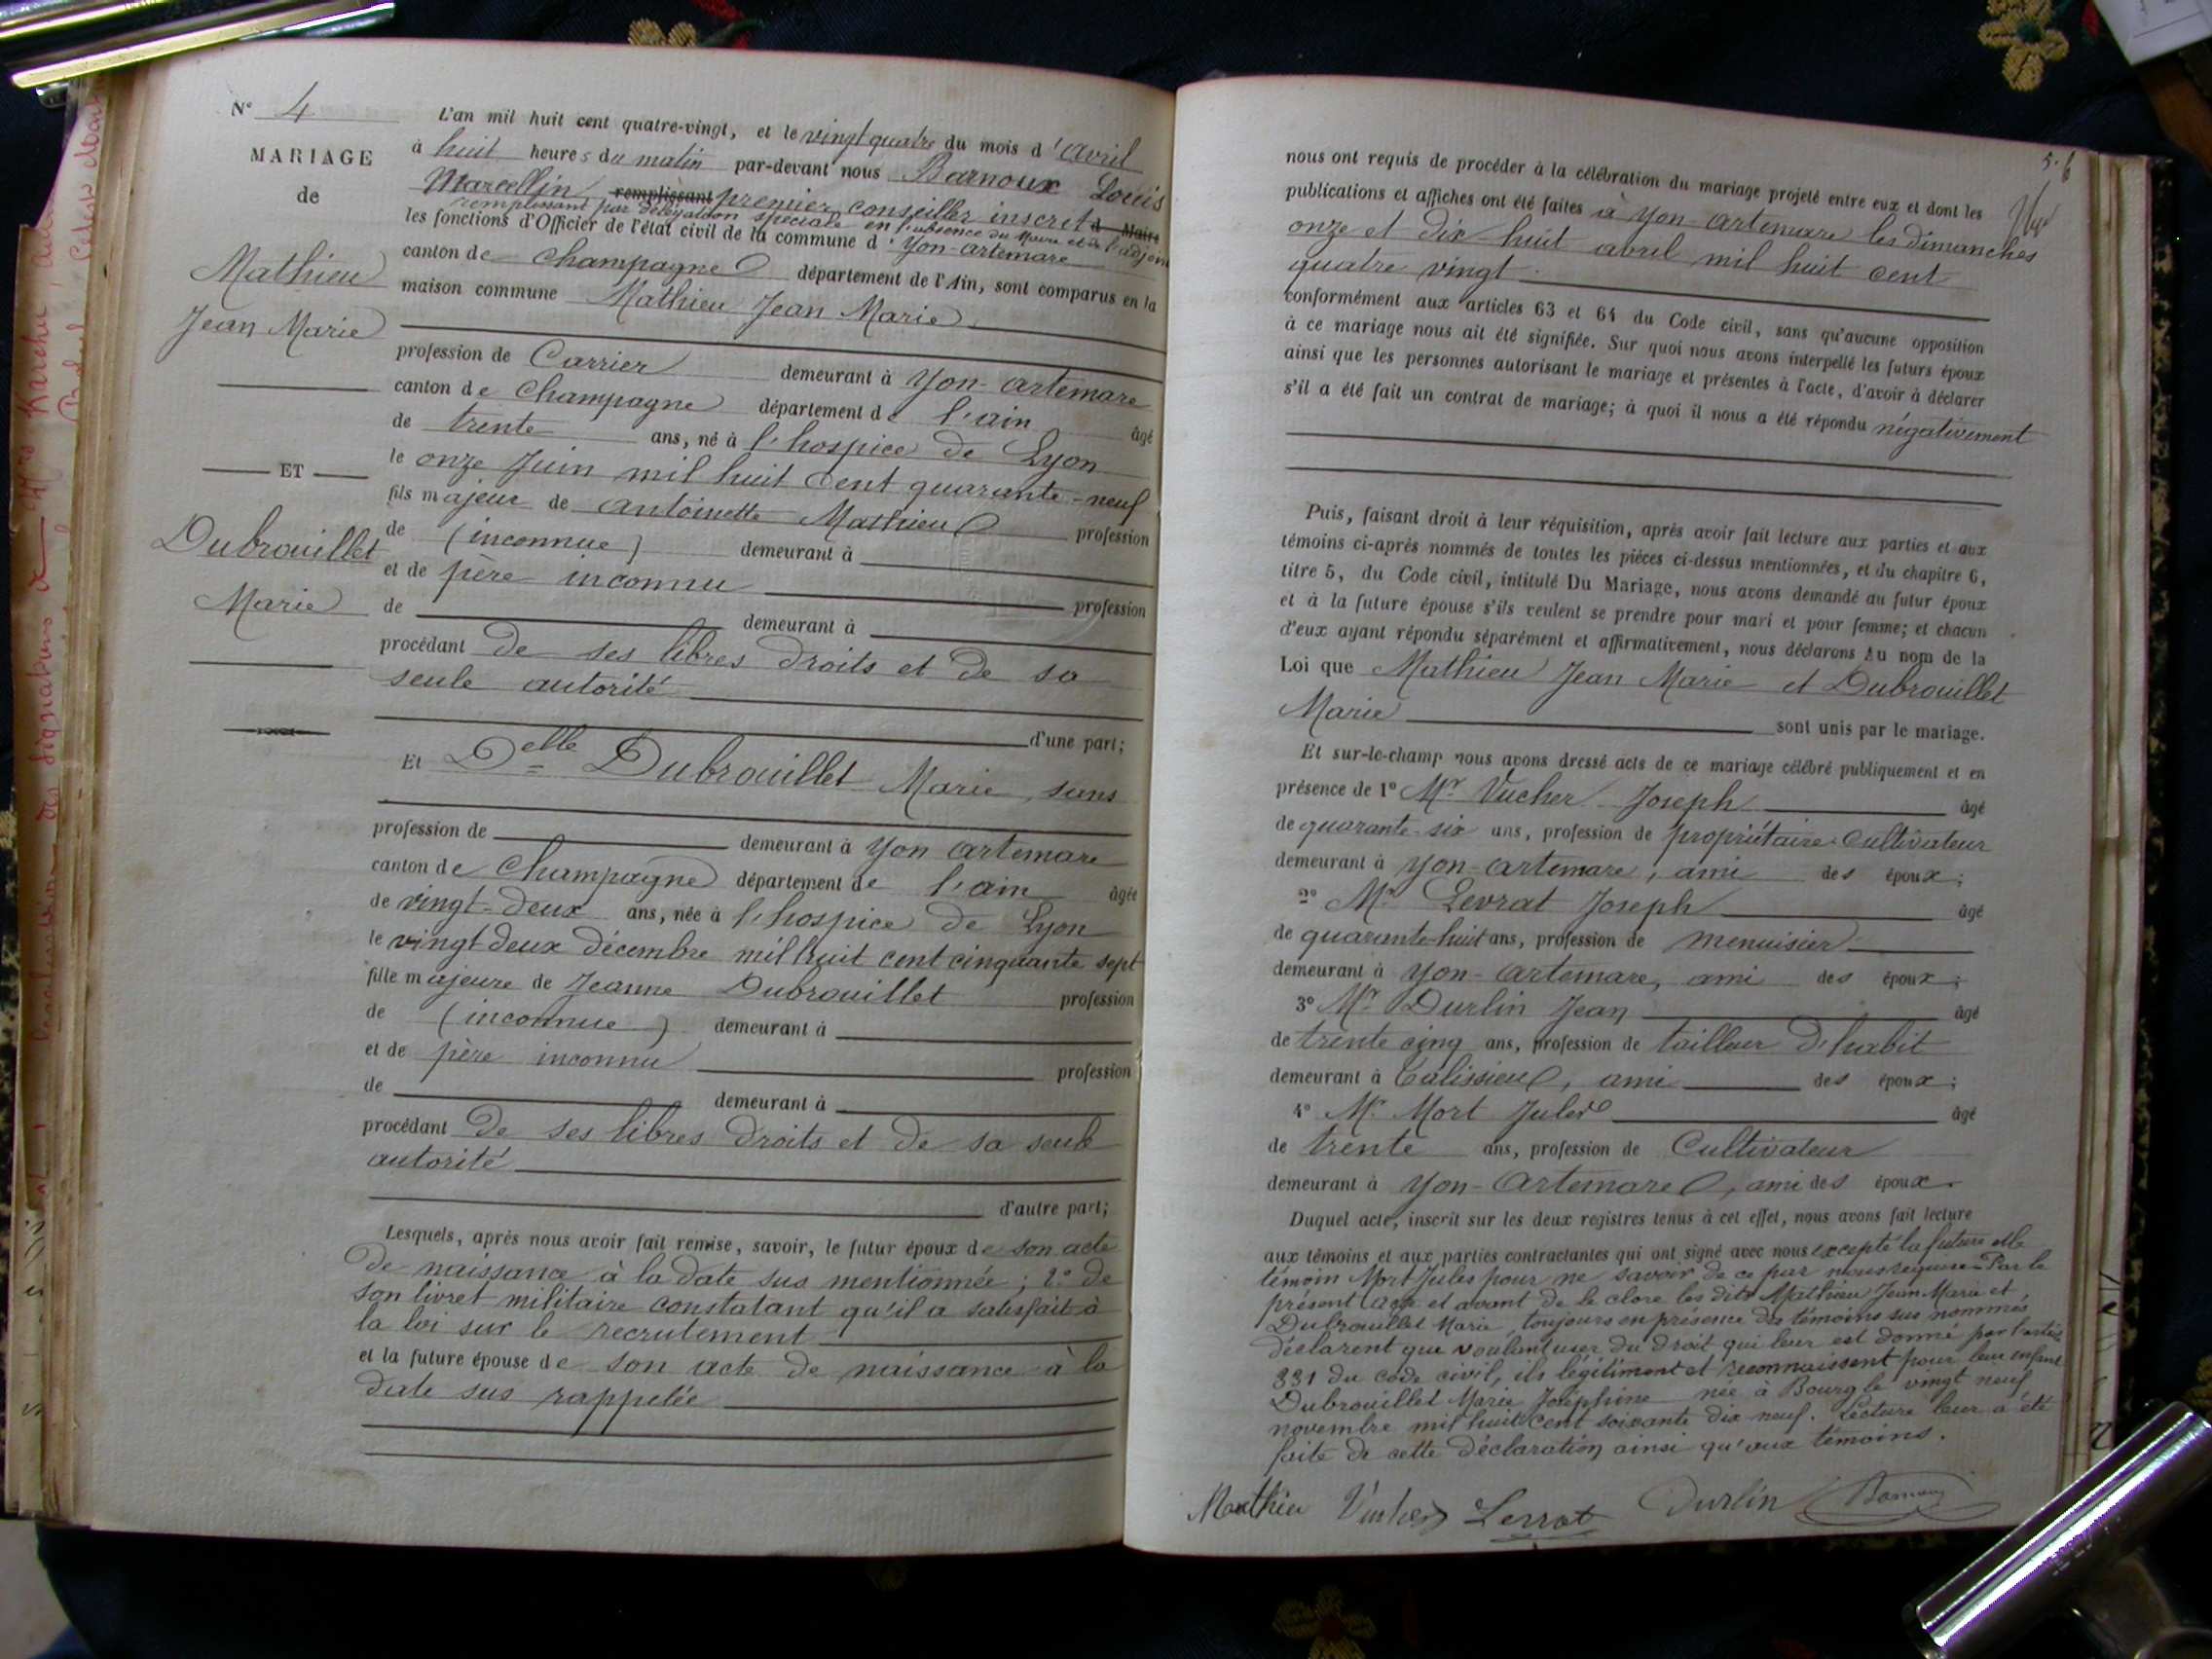 N° 4
MARIAGE
de
Mathieu
Jean Marie
ET
Dubrouillet
Marie
L'an mil huit cent quatre-vingt, et le vingt quatre du mois d'avril
à huit heures du matin par-devant nous Barnoux Louis
Marcellin remplissant premier conseiller inscret d Maire
remplissant par délégation spéciale en l'absence du Maire et de l'adjoint
les fonctions d'Officier de l'état civil de la commune d'Yon-artemare
canton de Champagne département de l'Ain, sont comparus en la
maison commune Mathieu Jean Marie
profession de Carrier demeurant à Yon-artemare
canton de Champagne département de l'ain âgé
de trente ans, né à l'hospice de Lyon
le onze Juin mil huit cent quarante-neuf
fils majeur de antoinette Mathieu profession
de (inconnue) demeurant à
et de père inconnu profession
de demeurant à
procédant de ses libres droits et de sa
seule autorité
d'une part;
Et Delle Dubrouillet Marie, sans
profession de demeurant à Yon artemare
canton de Champagne département de l'ain âgée
de vingt-deux ans, née à l'hospice de Lyon
le vingt deux décembre mil huit cent cinquante sept
fille majeure de Jeanne Dubrouillet profession
de (inconnue) demeurant à
et de père inconnu profession
de demeurant à
procédant de ses libres droits et de sa seule
autorité
d'autre part;
Lesquels, après nous avoir fait remise, savoir, le futur époux de son acte
de naissance à la date sus mentionnée; 2° de
son livret militaire constatant qu'il a satisfait à
la loi sur le recrutement
et la future épouse de son acte de naissance à la
date sus rappelée
nous ont requis de procéder à la célébration du mariage projeté entre eux et dont les
publications et affiches ont été faites à Yon-artemare les dimanches
onze et dix-huit avril mil huit cent
quatre vingt.
conformément aux articles 63 et 64 du Code civil, sans qu'aucune opposition
à ce mariage nous ait été signifiée. Sur quoi nous avons interpellé les futurs époux
ainsi que les personnes autorisant le mariage et présentes à l'acte, d'avoir à déclarer
s'il a été fait un contrat de mariage; à quoi il nous a été répondu négativement
Puis, faisant droit à leur réquisition, après avoir fait lecture aux parties et aux
témoins ci-après nommés de toutes les pièces ci-dessus mentionnées, et du chapitre 6,
titre 5, du Code civil, intitulé Du Mariage, nous avons demandé au futur époux
et à la future épouse s'ils veulent se prendre pour mari et pour femme; et chacun
d'eux ayant répondu séparément et affirmativement, nous déclarons Au nom de la
Loi que Mathieu Jean Marie et Dubrouillet
Marie sont unis par le mariage.
Et sur-le-champ nous avons dressé acte de ce mariage célébré publiquement et en
présence de 1° Mr Vucher Joseph âgé
de quarante-six ans, profession de propriétaire cultivateur
demeurant à Yon-artemare, ami des époux;
2° Mr Levrat Joseph âgé
de quarante-huit ans, profession de menuisier
demeurant à Yon-artemare, ami des époux;
3° Mr Durlin Jean âgé
de trente cinq ans, profession de tailleur d'habit
demeurant à Talissieu, ami des époux;
4° Mr Mort Jules âgé
de trente ans, profession de Cultivateur
demeurant à Yon-Artemare, ami des époux.
Duquel acte, inscrit sur les deux registres tenus à cet effet, nous avons fait lecture
aux témoins et aux parties contractantes qui ont signé avec nous excepté la future et le
témoin Mort Jules pour ne savoir de ce par nous requise. Par le
présent acte et avant de le clore les dits Mathieu Jean Marie et
Dubrouillet Marie, toujours en présence des témoins sus nommés
déclarent que voulant user du droit qui leur est donné par l'article
331 du code civil, ils légitiment et reconnaissent pour leur enfant
Dubrouillet Marie Joséphine née à Bourg le vingt neuf
novembre mil huit cent soixante dix neuf. Lecture leur a été
faite de cette déclaration ainsi qu'aux témoins.
Mathieu Vucher Levrat Durlin Barnoux